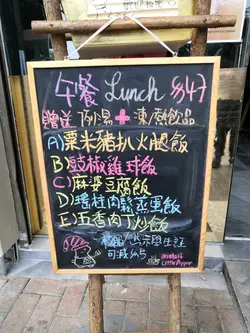 午餐 Lunch $47
贈送 例湯 + 凍/熱飲品
A) 粟米豬扒火腿飯
B) 豉椒雞球飯
C) 麻婆豆腐飯
D) 瑤柱肉鬆蒸蛋飯
E) 五香肉丁炒飯
出示學生証
可減
Little Pepper